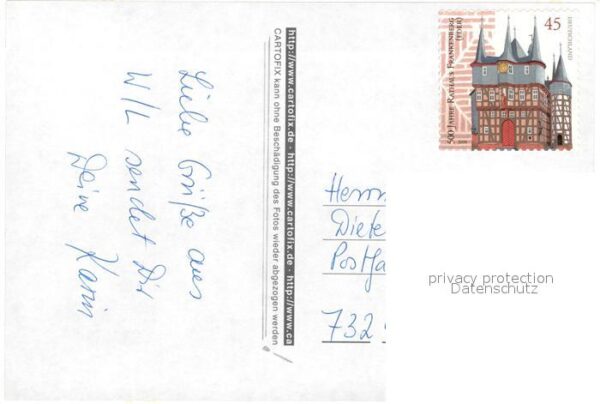 Liebe Grüße aus
W/L sendet Dir
Deine Karin
http://www.cartofix.de - http://www.cartofix.de - http://www.ca
CARTOFIX kann ohne Beschädigung des Fotos wieder abgezogen werden
45
DEUTSCHLAND
500 Jahre Rathaus Frankenberg
(Eder)
Herrn
Diete
Postfa
732
privacy protection
Datenschutz